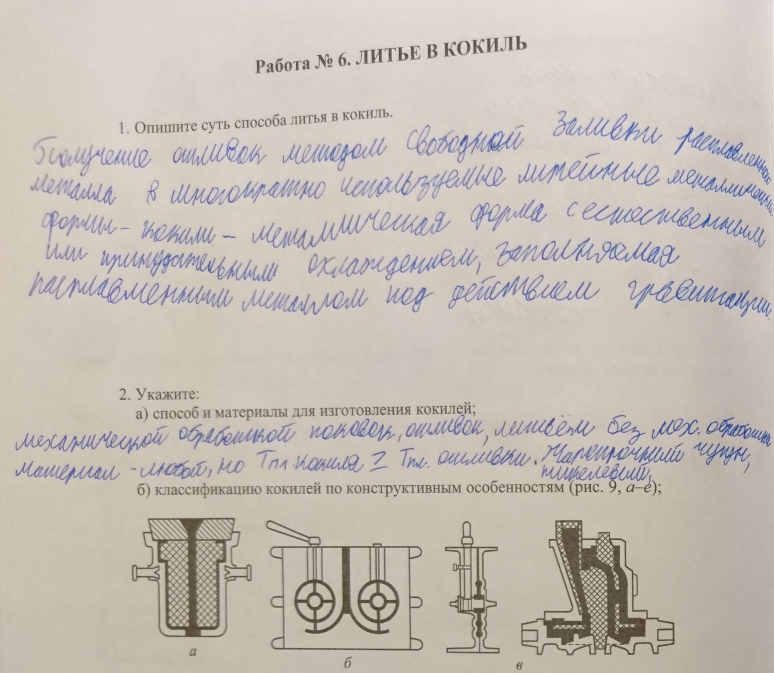 Работа № 6. ЛИТЬЕ В КОКИЛЬ
1. Опишите суть способа литья в кокиль.
Получение отливок методом свободной заливки расплавленного
металла в многократно используемые литейные металлические
формы - кокили - металлическая форма с естественным
или принудительным охлаждением, заполняемая
расплавленным металлом под действием гравитации
2. Укажите:
а) способ и материалы для изготовления кокилей;
механической обработкой поковок, отливок, литьём без мех. обработки
материал - любой, но Тпл кокиля ≥ Тпл. отливки. Жаропрочный чугун,
никелевый,
б) классификацию кокилей по конструктивным особенностям (рис. 9, а–е);
а
б
в